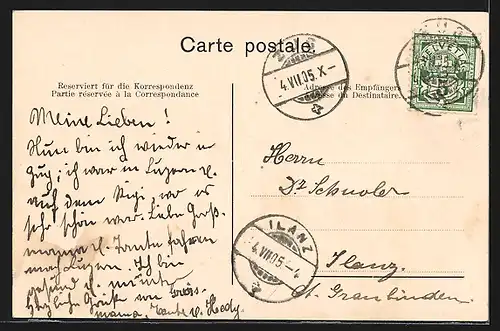 Carte postale.
Reserviert für die Korrespondenz
Partie réservée à la Correspondance
Adresse des Empfängers
Adresse du Destinataire.
HELVETIA
4.VII.05.X-
Meine Lieben!
Nun bin ich wieder in
Zug; ich war in Luzern u.
auf dem Rigi, wo es
sehr schön war. Liebe Groß-
mama u. Tante fahren
nach Luzern. Ich bin
gesund u. munter
Herzliche Grüße von Gross-
mama, Tante u. Hedy.
Herrn
Dr. Schuoler
Ilanz.
Ct. Graubünden
ILANZ
4.VII.05.-4